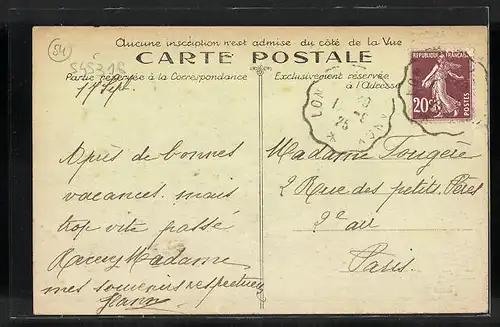 54
545318
Aucune inscription n'est admise du côté de la Vue
CARTE POSTALE
Partie réservée à la Correspondance
Exclusivement réservée
à l'Adresse
17 Sept.
RÉPUBLIQUE FRANÇAISE
20c
LON
25
Après de bonnes
vacances mais
trop vite passé
Recevez Madame
mes souvenirs respectueux
Madame Fougère
2 Rue des petits Pères
2e au
Paris.